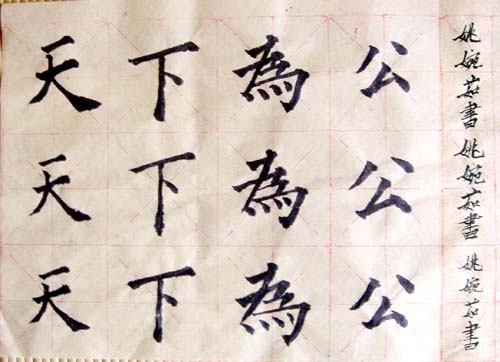 天下為公
天下為公
天下為公
姚婉茹書姚婉茹書姚婉茹書